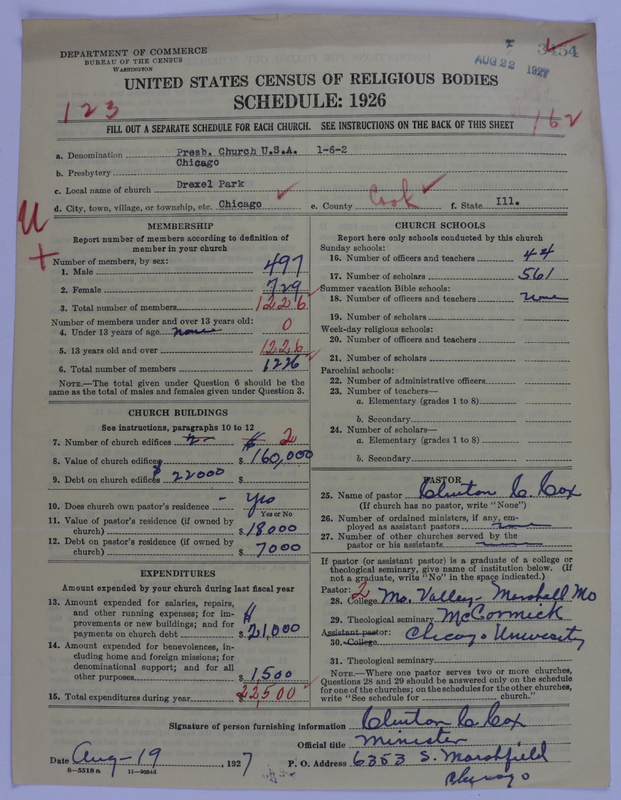 DEPARTMENT OF COMMERCE
BUREAU OF THE CENSUS
WASHINGTON
AUG 22 1927
3454
UNITED STATES CENSUS OF RELIGIOUS BODIES
SCHEDULE: 1926
123
162
FILL OUT A SEPARATE SCHEDULE FOR EACH CHURCH. SEE INSTRUCTIONS ON THE BACK OF THIS SHEET
a. Denomination Presb. Church U.S.A. 1-6-2
b. Presbytery Chicago
c. Local name of church Drexel Park
d. City, town, village, or township, etc. Chicago e. County Cook f. State Ill.
U
MEMBERSHIP
Report number of members according to definition of member in your church
Number of members, by sex:
1. Male 497
2. Female 729
3. Total number of members 1226
Number of members under and over 13 years old:
4. Under 13 years of age none 0
5. 13 years old and over 1226
6. Total number of members 1226
NOTE.—The total given under Question 6 should be the same as the total of males and females given under Question 3.
CHURCH BUILDINGS
See instructions, paragraphs 10 to 12
7. Number of church edifices 2 2
8. Value of church edifices $ 160,000
9. Debt on church edifices $ 22000 $
10. Does church own pastor's residence Yes
Yes or No
11. Value of pastor's residence (if owned by church) $ 18000
12. Debt on pastor's residence (if owned by church) $ 7000
EXPENDITURES
Amount expended by your church during last fiscal year
13. Amount expended for salaries, repairs, and other running expenses; for improvements or new buildings; and for payments on church debt $ 21,000
14. Amount expended for benevolences, including home and foreign missions; for denominational support; and for all other purposes $ 1500
15. Total expenditures during year $ 22,500
CHURCH SCHOOLS
Report here only schools conducted by this church
Sunday schools:
16. Number of officers and teachers 44
17. Number of scholars 561
Summer vacation Bible schools:
18. Number of officers and teachers none
19. Number of scholars
Week-day religious schools:
20. Number of officers and teachers
21. Number of scholars
Parochial schools:
22. Number of administrative officers
23. Number of teachers—
a. Elementary (grades 1 to 8)
b. Secondary
24. Number of scholars—
a. Elementary (grades 1 to 8)
b. Secondary
PASTOR
25. Name of pastor Clinton C. Cox
(If church has no pastor, write "None")
26. Number of ordained ministers, if any, employed as assistant pastors none
27. Number of other churches served by the pastor or his assistants
If pastor (or assistant pastor) is a graduate of a college or theological seminary, give name of institution below. (If not a graduate, write "No" in the space indicated.)
Pastor: 2
28. College Mo. Valley - Marshall Mo
29. Theological seminary McCormick
Assistant pastor: Chicago University
30. College
31. Theological seminary
NOTE.—Where one pastor serves two or more churches, Questions 28 and 29 should be answered only on the schedule for one of the churches; on the schedules for the other churches, write "See schedule for church."
Signature of person furnishing information Clinton C. Cox
Official title Minister
Date Aug-19, 1927 P. O. Address 6353 S. Marshfield
Chicago
8—5518a 11—9054d